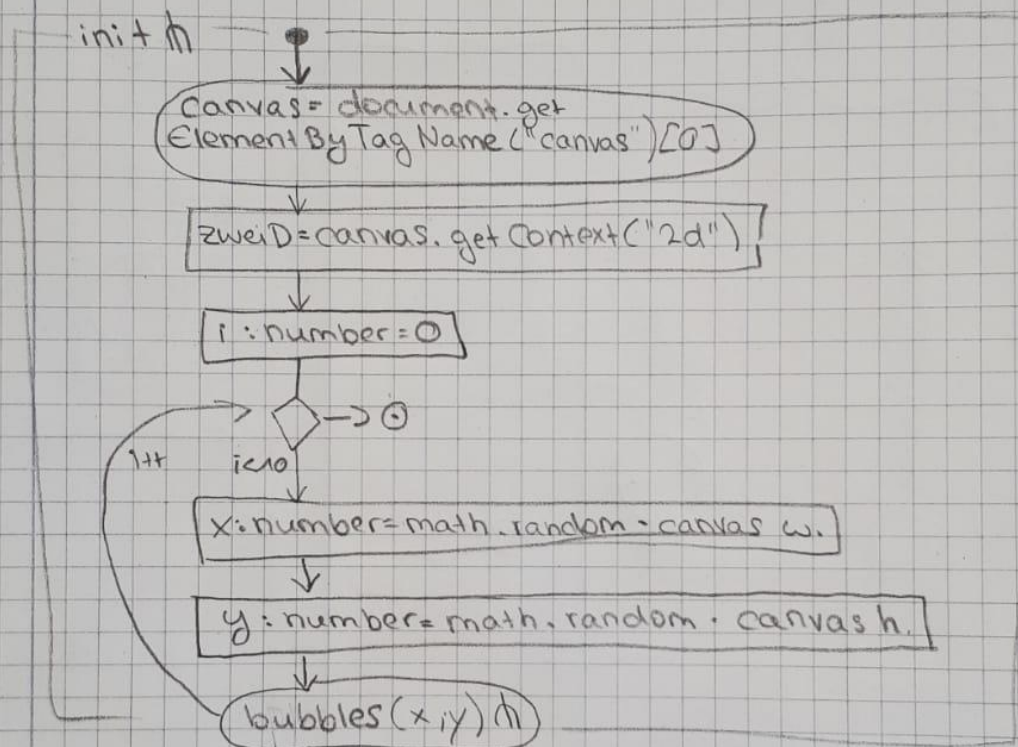 init
canvas = document.get
Element By Tag Name ("canvas")[0]
zweiD = canvas.getContext("2d")
i : number = 0
i++
i<10
x : number = math.random · canvas w.
y : number = math.random · canvas h.
bubbles (x,y)